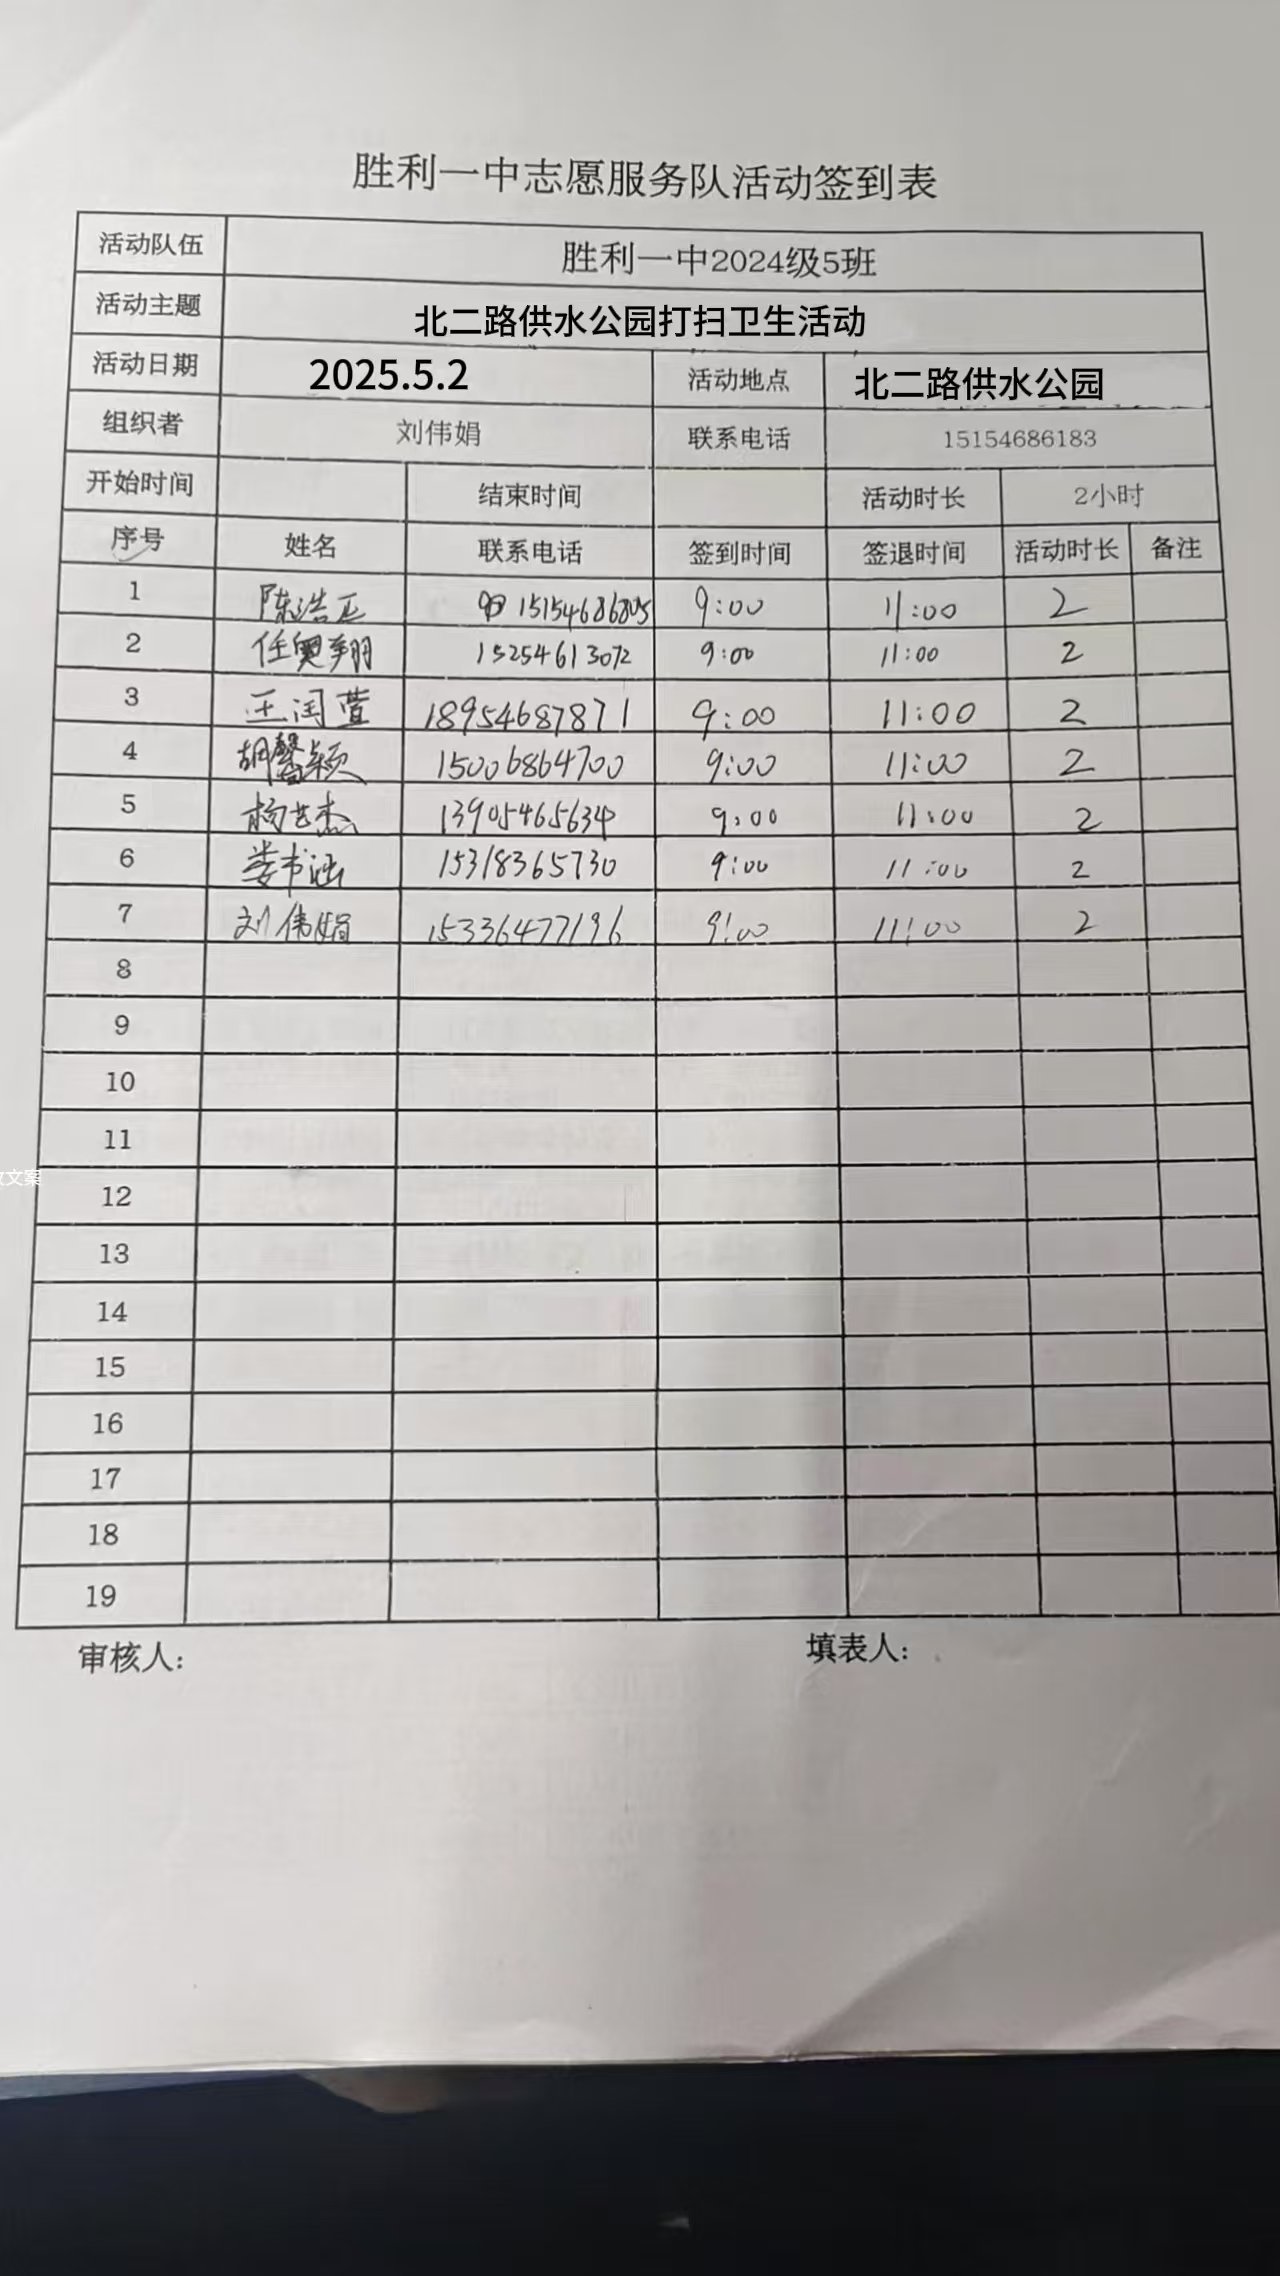 胜利一中志愿服务队活动签到表
活动队伍 胜利一中2024级5班
活动主题 北二路供水公园打扫卫生活动
活动日期 2025.5.2 活动地点 北二路供水公园
组织者 刘伟娟 联系电话 15154686183
开始时间 结束时间 活动时长 2小时
序号 姓名 联系电话 签到时间 签退时间 活动时长 备注
1 陈浩正 15154686805 9:00 11:00 2
2 任奥翔 15254613072 9:00 11:00 2
3 王闰萱 18954687871 9:00 11:00 2
4 胡馨颖 15006864700 9:00 11:00 2
5 杨艺杰 13905465634 9:00 11:00 2
6 娄书涵 15318365730 9:00 11:00 2
7 刘伟娟 15336477196 9:00 11:00 2
8
9
10
11
文案
12
13
14
15
16
17
18
19
审核人: 填表人: